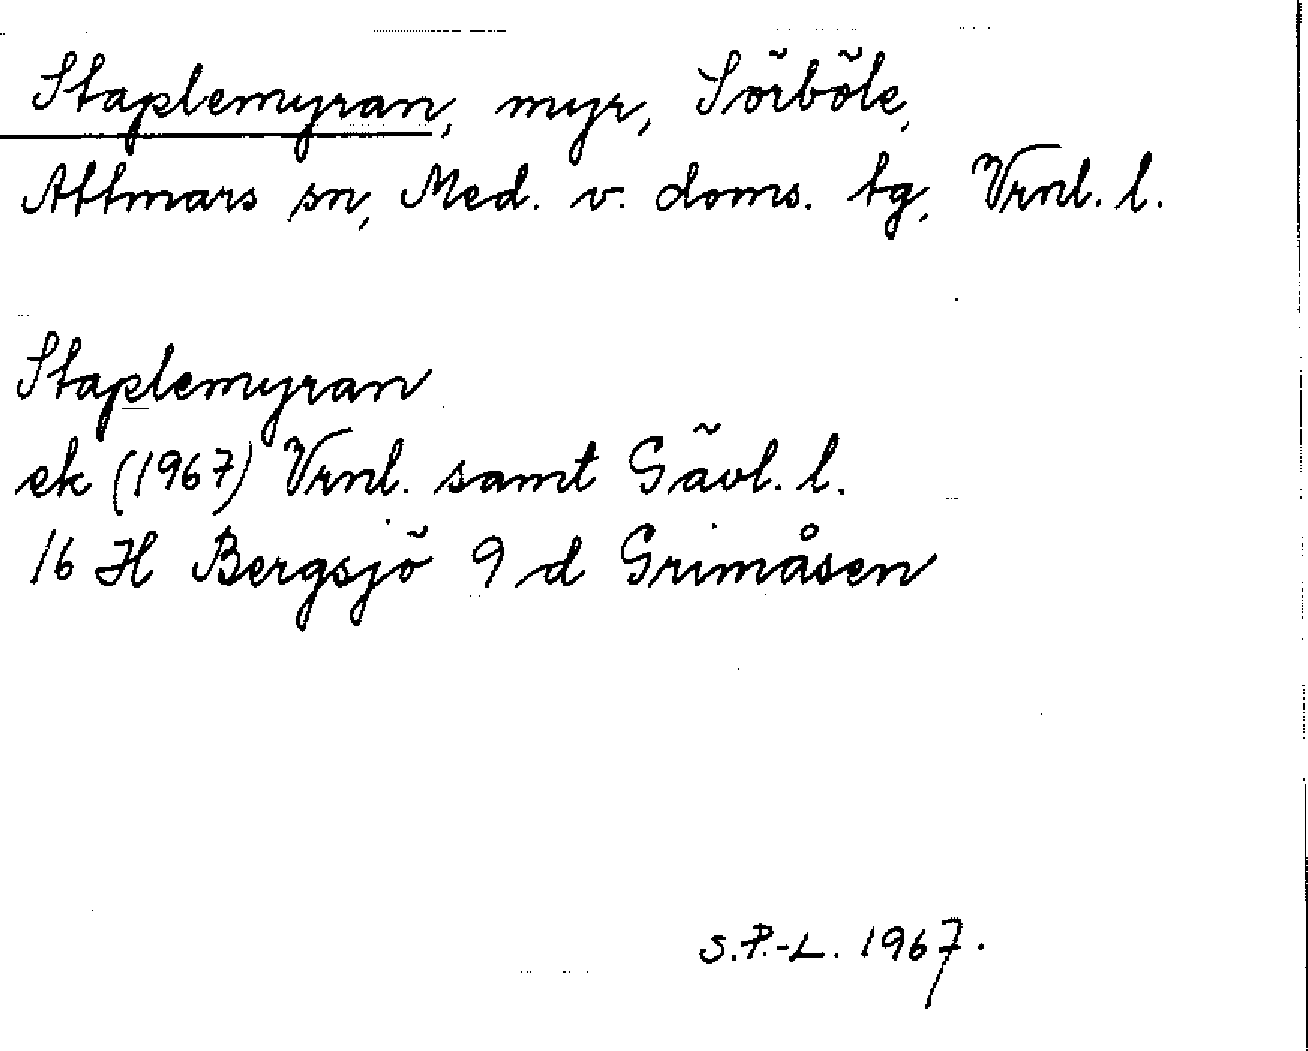 Staplemyran, myr, Sörböle,
Attmars sn, Med. v. doms. tg, Vrnl. l.
Staplemyran
ek (1967) Vrnl. samt Gävl. l.
16 H Bergsjö 9 d Grimåsen
S.P.-L. 1967.